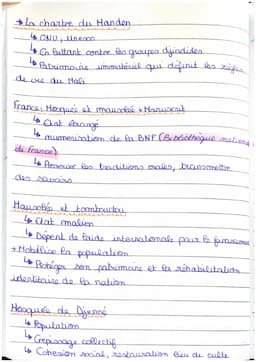 → La chartre du Manden
↳ ONU, Unesco
↳ En luttant contre les groupes djihdides
↳ Patrimoine immatériel qui définit les règles
de vie du Mali
France: Mosqués et mausolés + Manuscrit
↳ État étrangé
↳ numérisation de la BNF (Bibliothèque nationa
de France)
↳ Préserver les traditions orales, transmettre
des savoirs
Mausolés et tombouctou
↳ État malien
↳ Dépent de l'aide internationale pour le
+ Mobilise la population
↳ Protéger son patrimoine et la réhabilitation
identitaire de la nation
Mosquée de Djenné
↳ Population
↳ Crépissage collectif
↳ Cohésion social, restauration lieu de culte